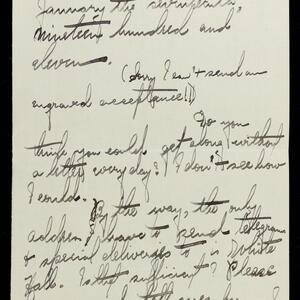 January the
nineteen hundred and
eleven.
(Sorry I can't send an
engraved acceptance!!)
Do you
think you could get along without
a letter every day? I don't see how
I could.
By the way, the only
address I have to send telegrams
& special deliveries to is White
Hall. Is that sufficient? Please